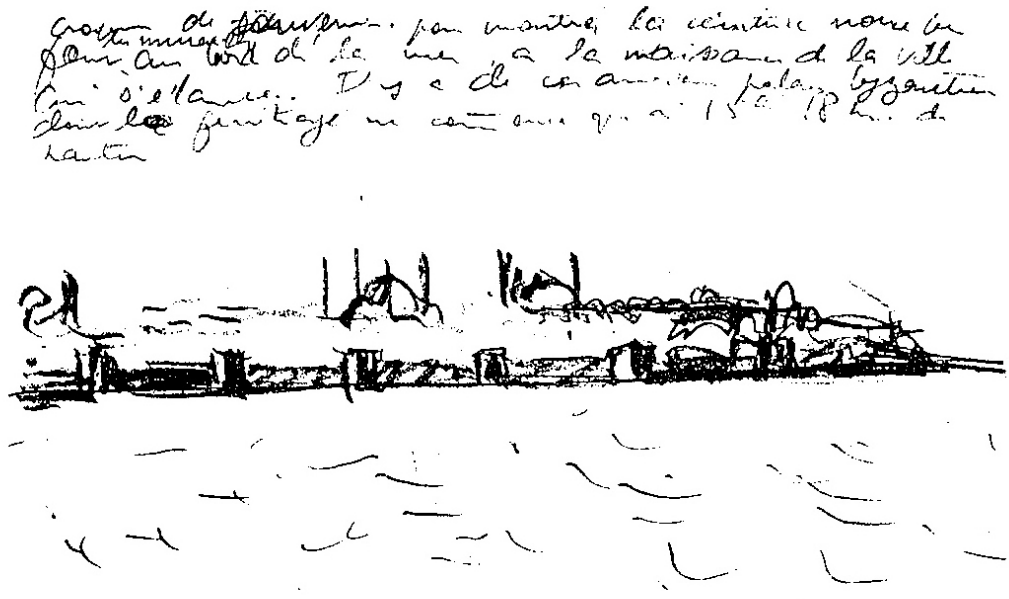 croquis de souvenir. pour montrer la ceinture noire
des murs
au bord de la mer, à la naissance de la ville
qui s'élance.. Il y a de ces anciens palais byzantins
dont le fenêtrage ne commence qu'à 15 à 18 m. de
hauteur